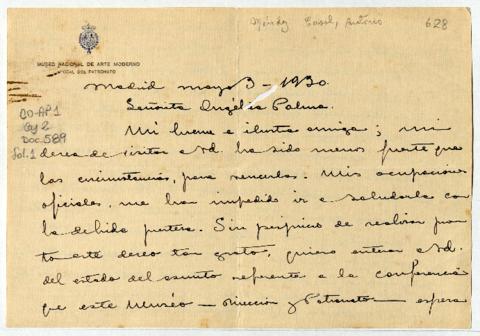 Méndez Casal, Antonio 628
MUSEO NACIONAL DE ARTE MODERNO
VOCAL DEL PATRONATO
Madrid mayo 3-1930.
Señorita Angélica Palma.
CO-AP1
Cy 2
Doc. 589
Fol. 1
Mi buena e ilustre amiga; mi
deseo de visitar a Vd. ha sido menos fuerte que
las circunstancias, para vencerlas. Mis ocupaciones
oficiales, me han impedido ir a saludarla con
la debida presteza. Sin perjuicio de realizar pron
to este deseo tan grato, quiero enterar a Vd.
del estado del asunto referente a la conferencia
que este Museo — Dirección y Patronato — espera